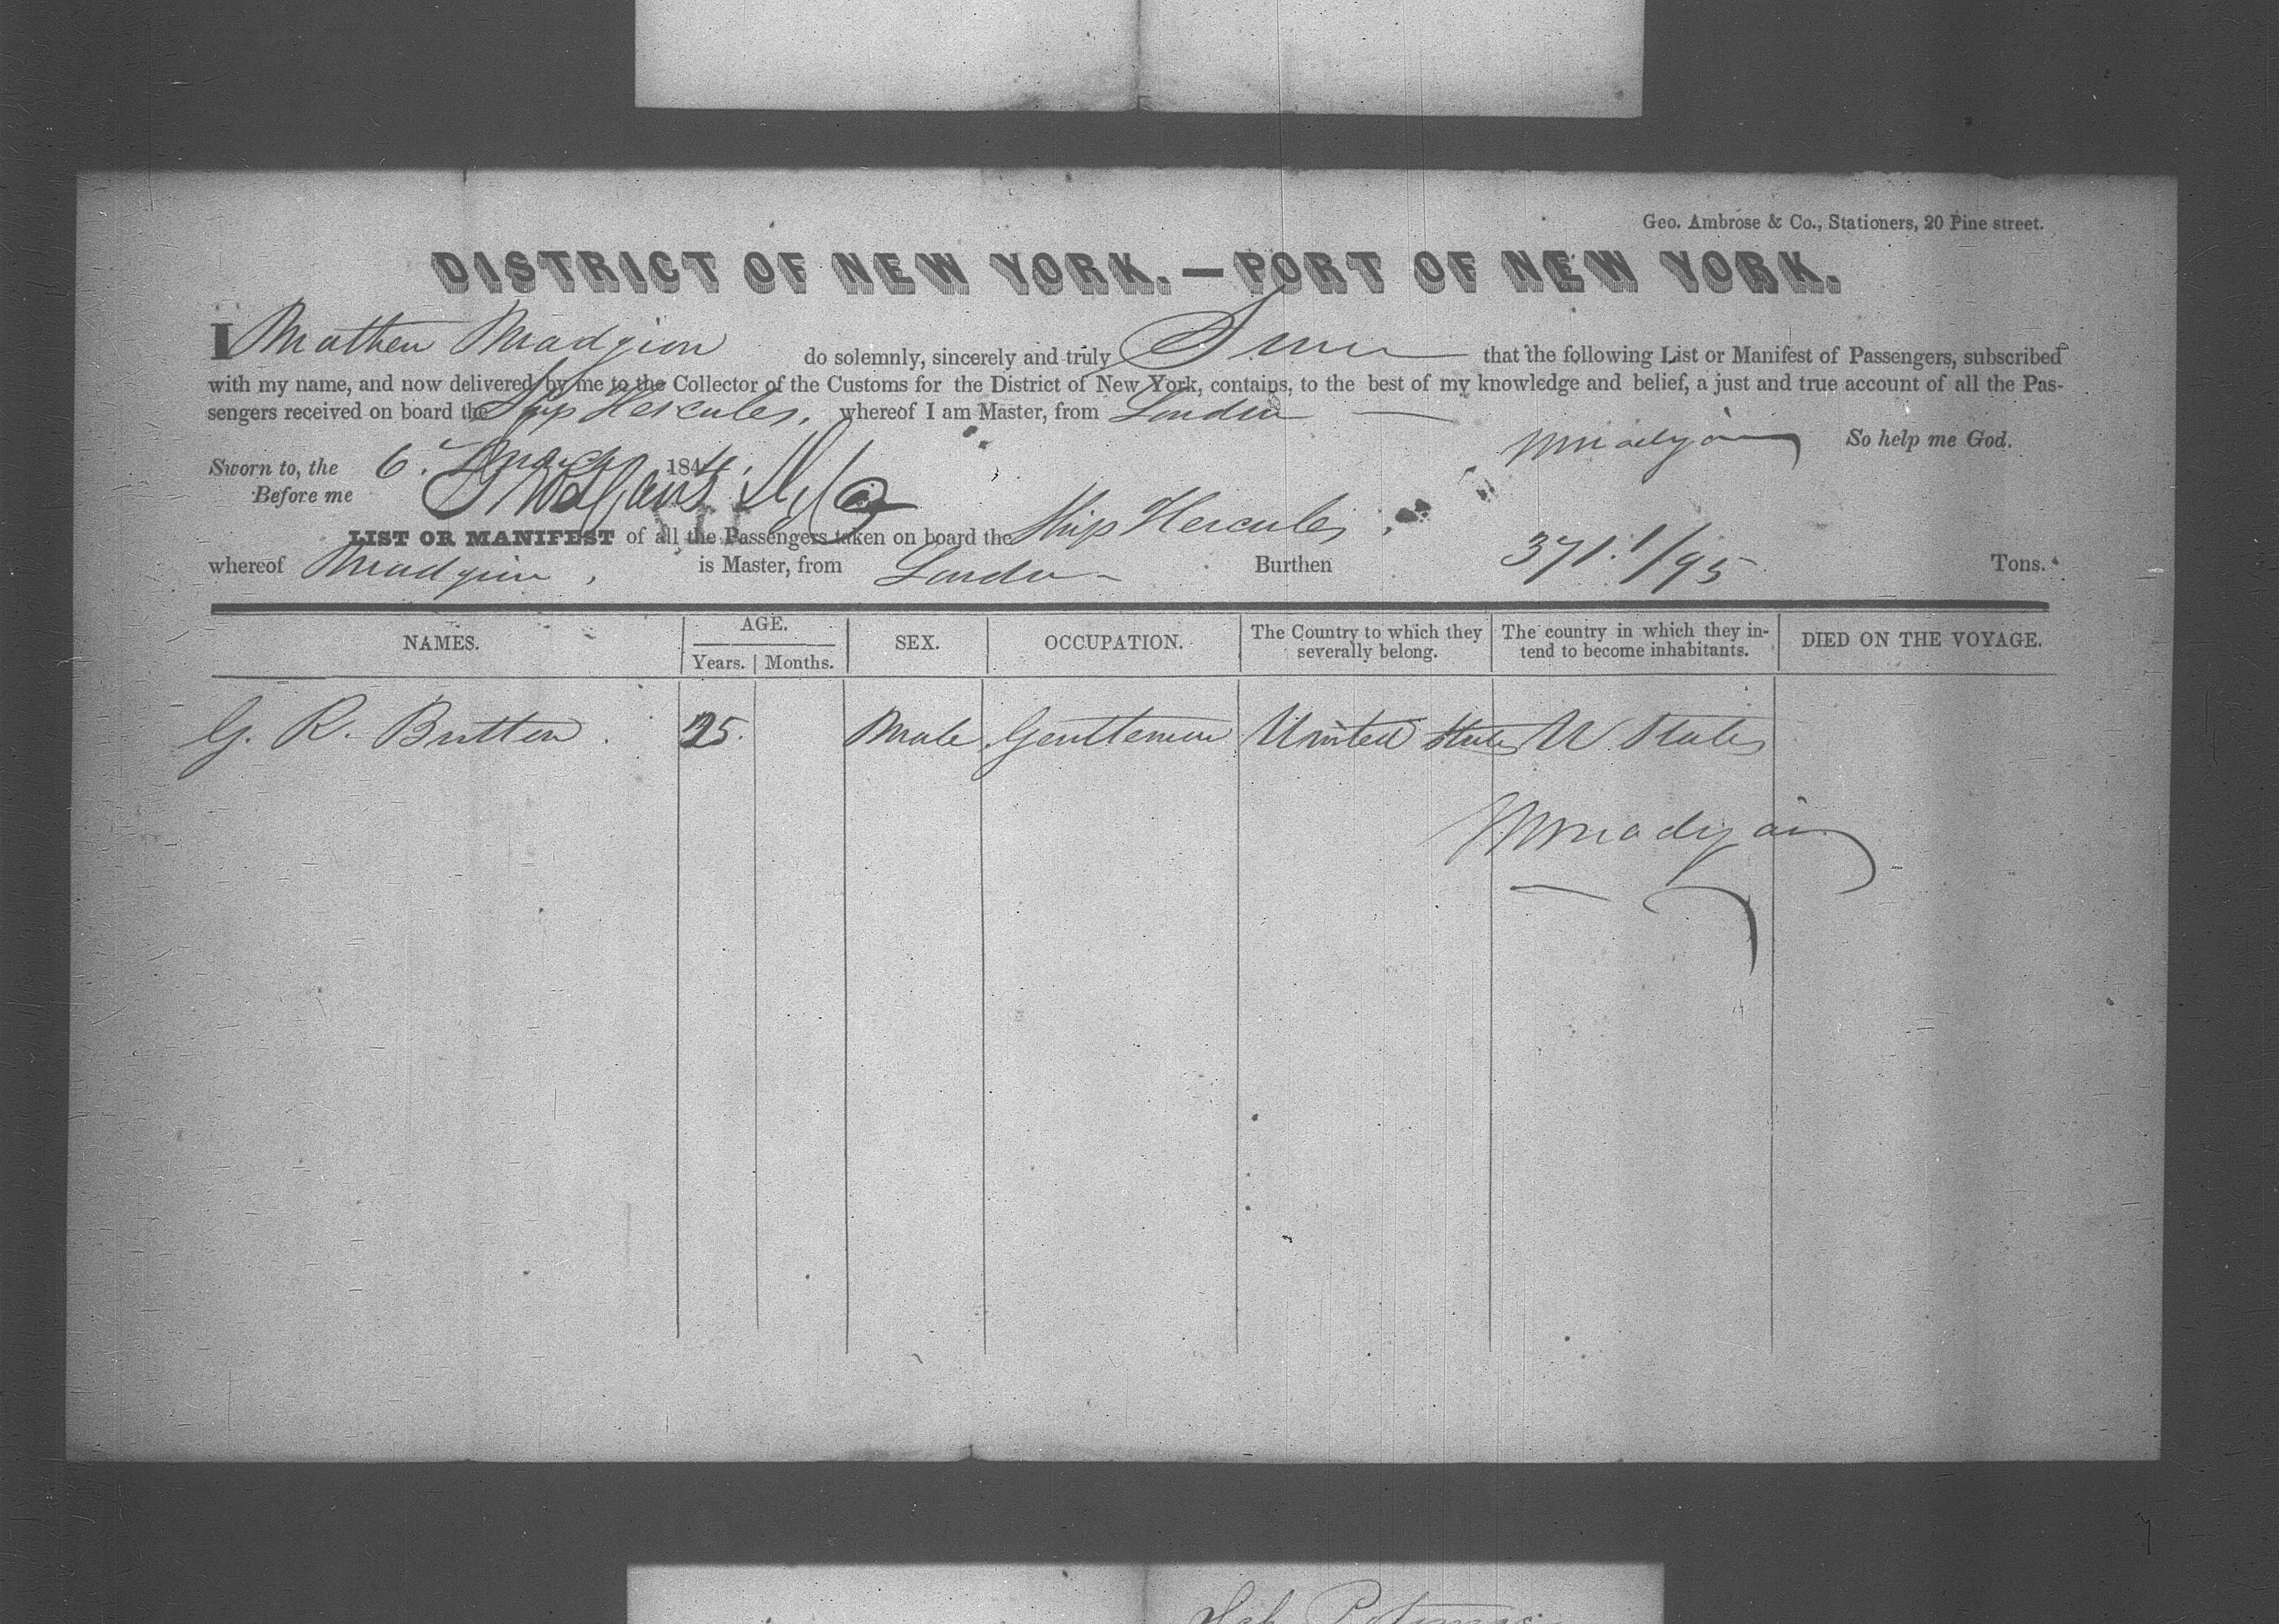 Geo. Ambrose & Co., Stationers, 20 Pine street.
DISTRICT OF NEW YORK.—PORT OF NEW YORK.
I Mathew Madgion do solemnly, sincerely and truly Swear that the following List or Manifest of Passengers, subscribed
with my name, and now delivered by me to the Collector of the Customs for the District of New York, contains, to the best of my knowledge and belief, a just and true account of all the Pas-
sengers received on board the Ship Hercules, whereof I am Master, from London
So help me God.
Sworn to, the 6. March 184
Before me
LIST OR MANIFEST of all the Passengers taken on board the Ship Hercules
whereof Madgion is Master, from London Burthen 371.1/95 Tons.
NAMES. AGE. Years. Months. SEX. OCCUPATION. The Country to which they severally belong. The country in which they in-tend to become inhabitants. DIED ON THE VOYAGE.
G. R. Britton 25. Male Gentleman United States U States
Sch